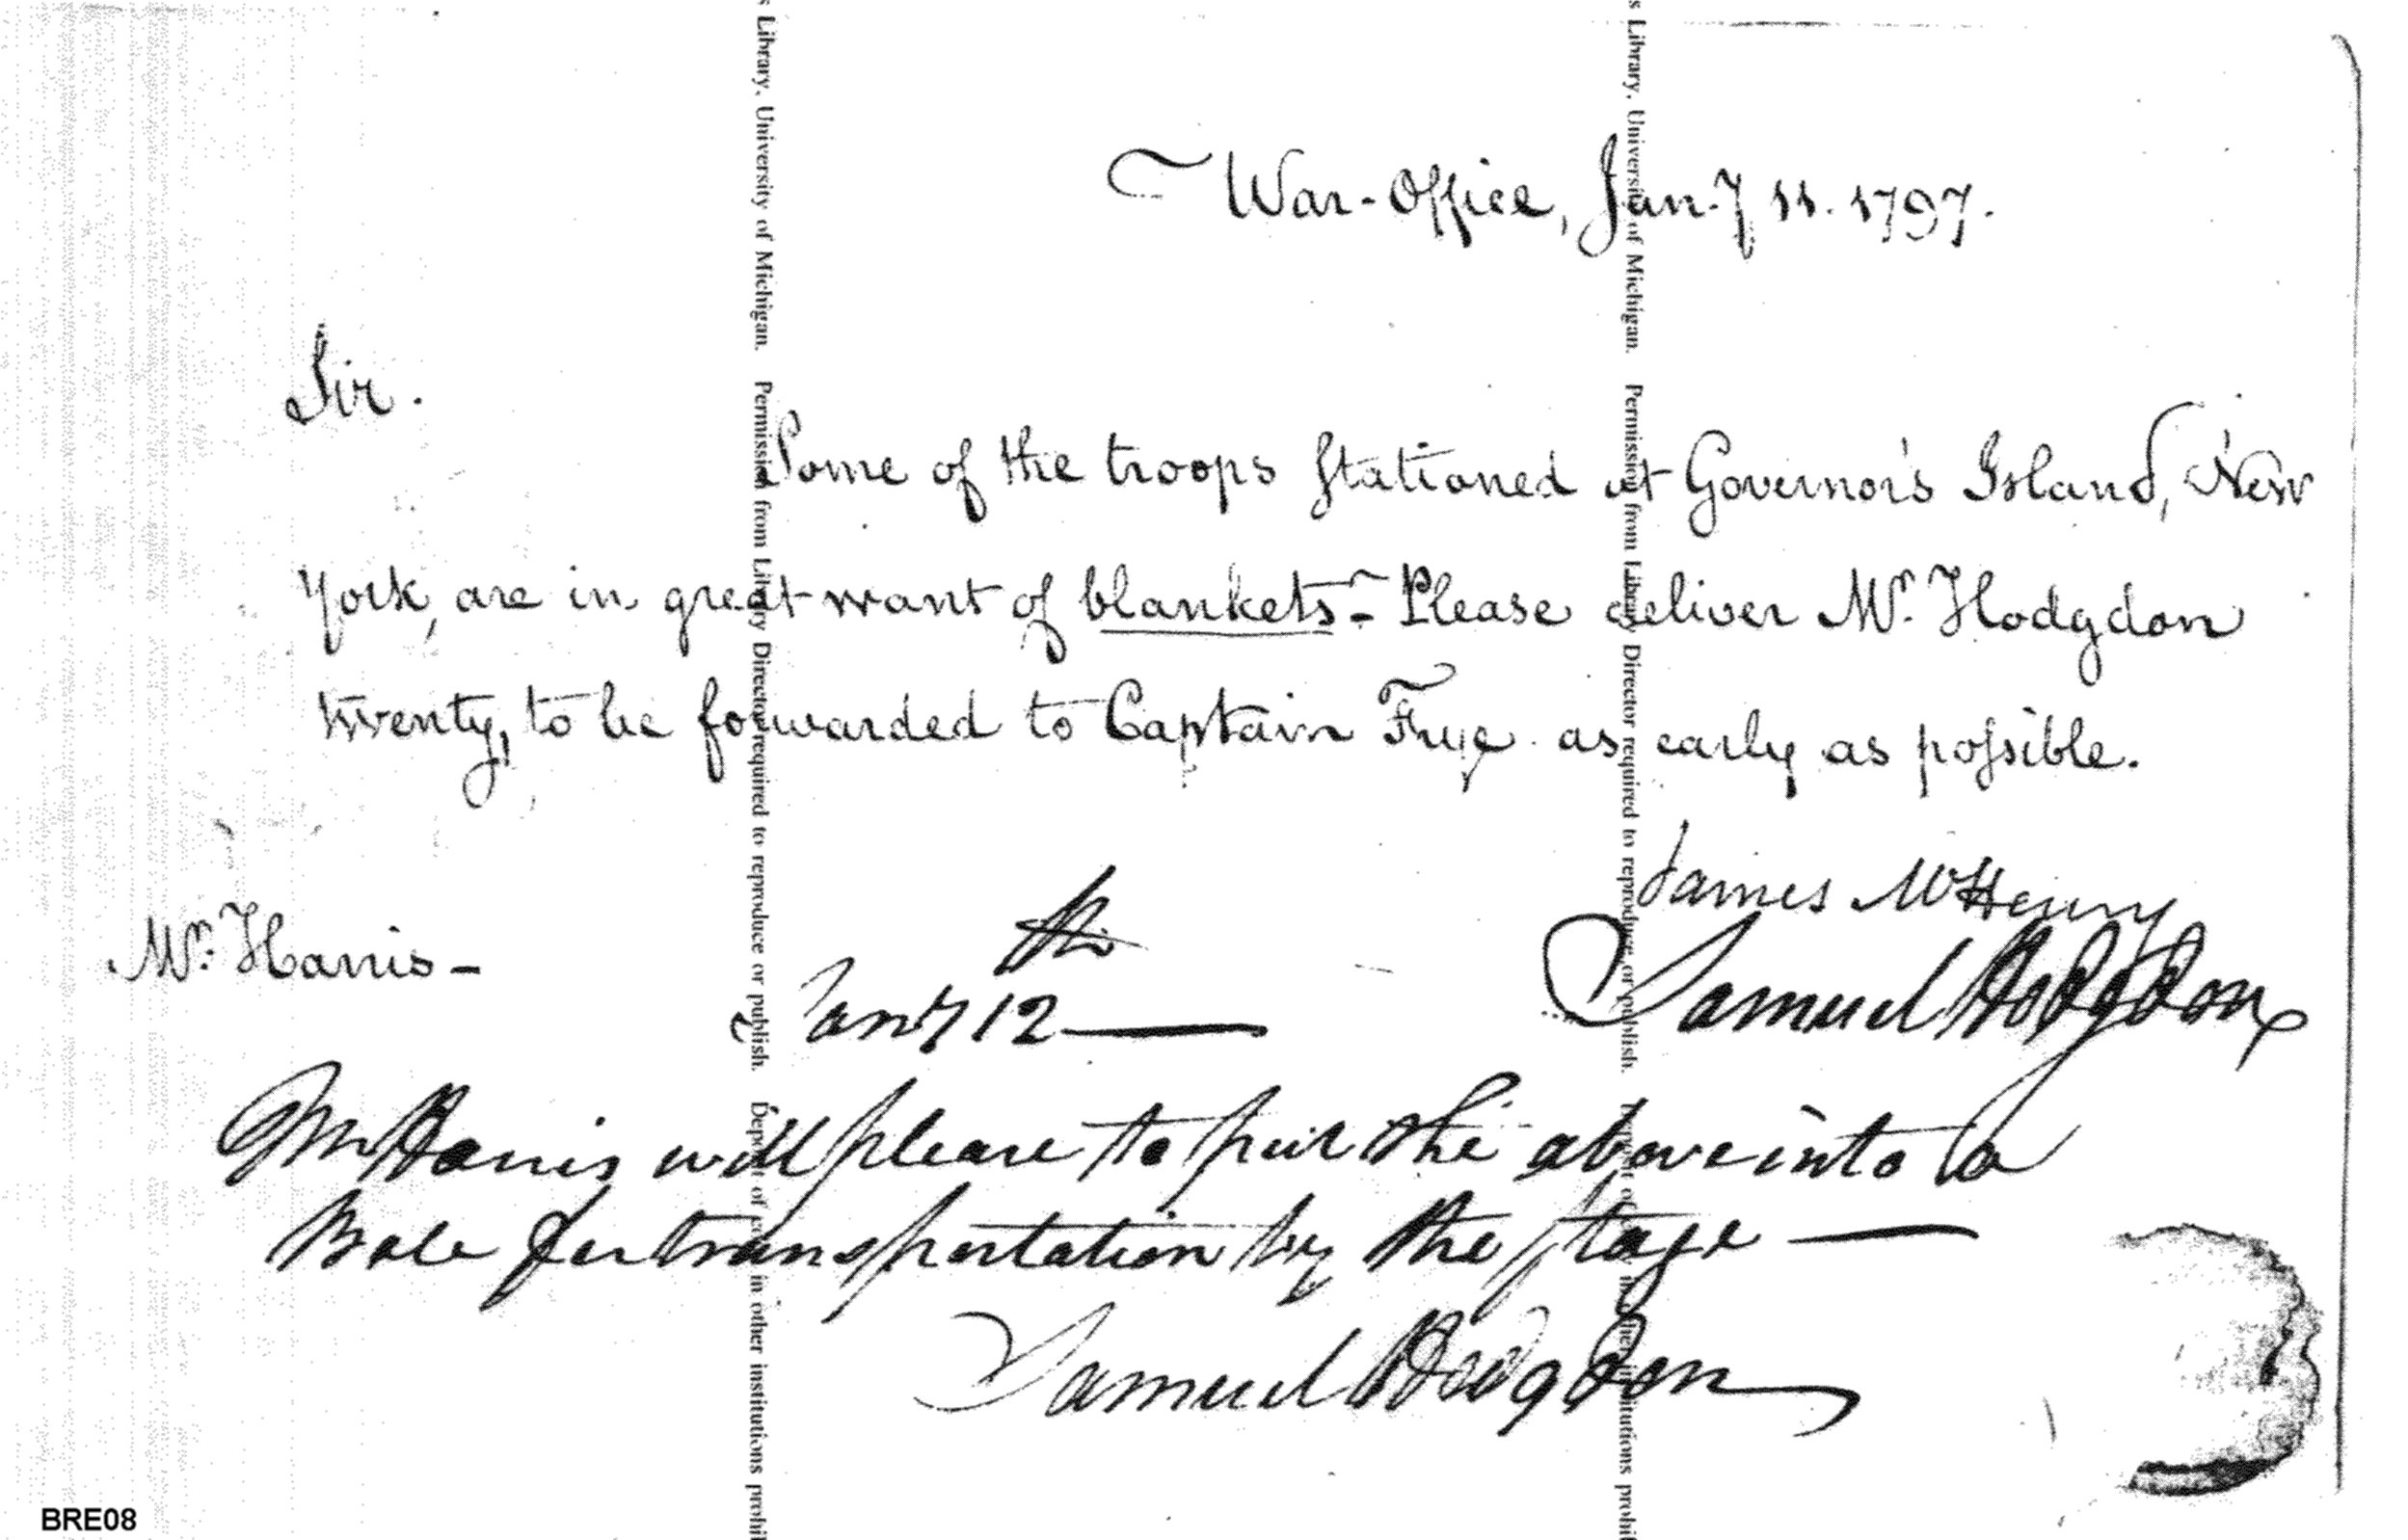 War-Office, Jan.y 11. 1797.
Sir.
Some of the troops stationed at Governor's Island, New
York, are in great want of blankets - Please deliver Mr. Hodgdon
twenty, to be forwarded to Captain Frye as early as possible.
James McHenry
Mr. Harris -
Samuel Hodgdon
Jany 12
Mr Harris will please to put the above into a
Bale for transportation by the stage
Samuel Hodgdon
s Library, University of Michigan. Permission from Library Director required to reproduce or publish. in other institutions prohi
s Library, University of Michigan. Permission from Library Director required to reproduce or publish. prohi
BRE08